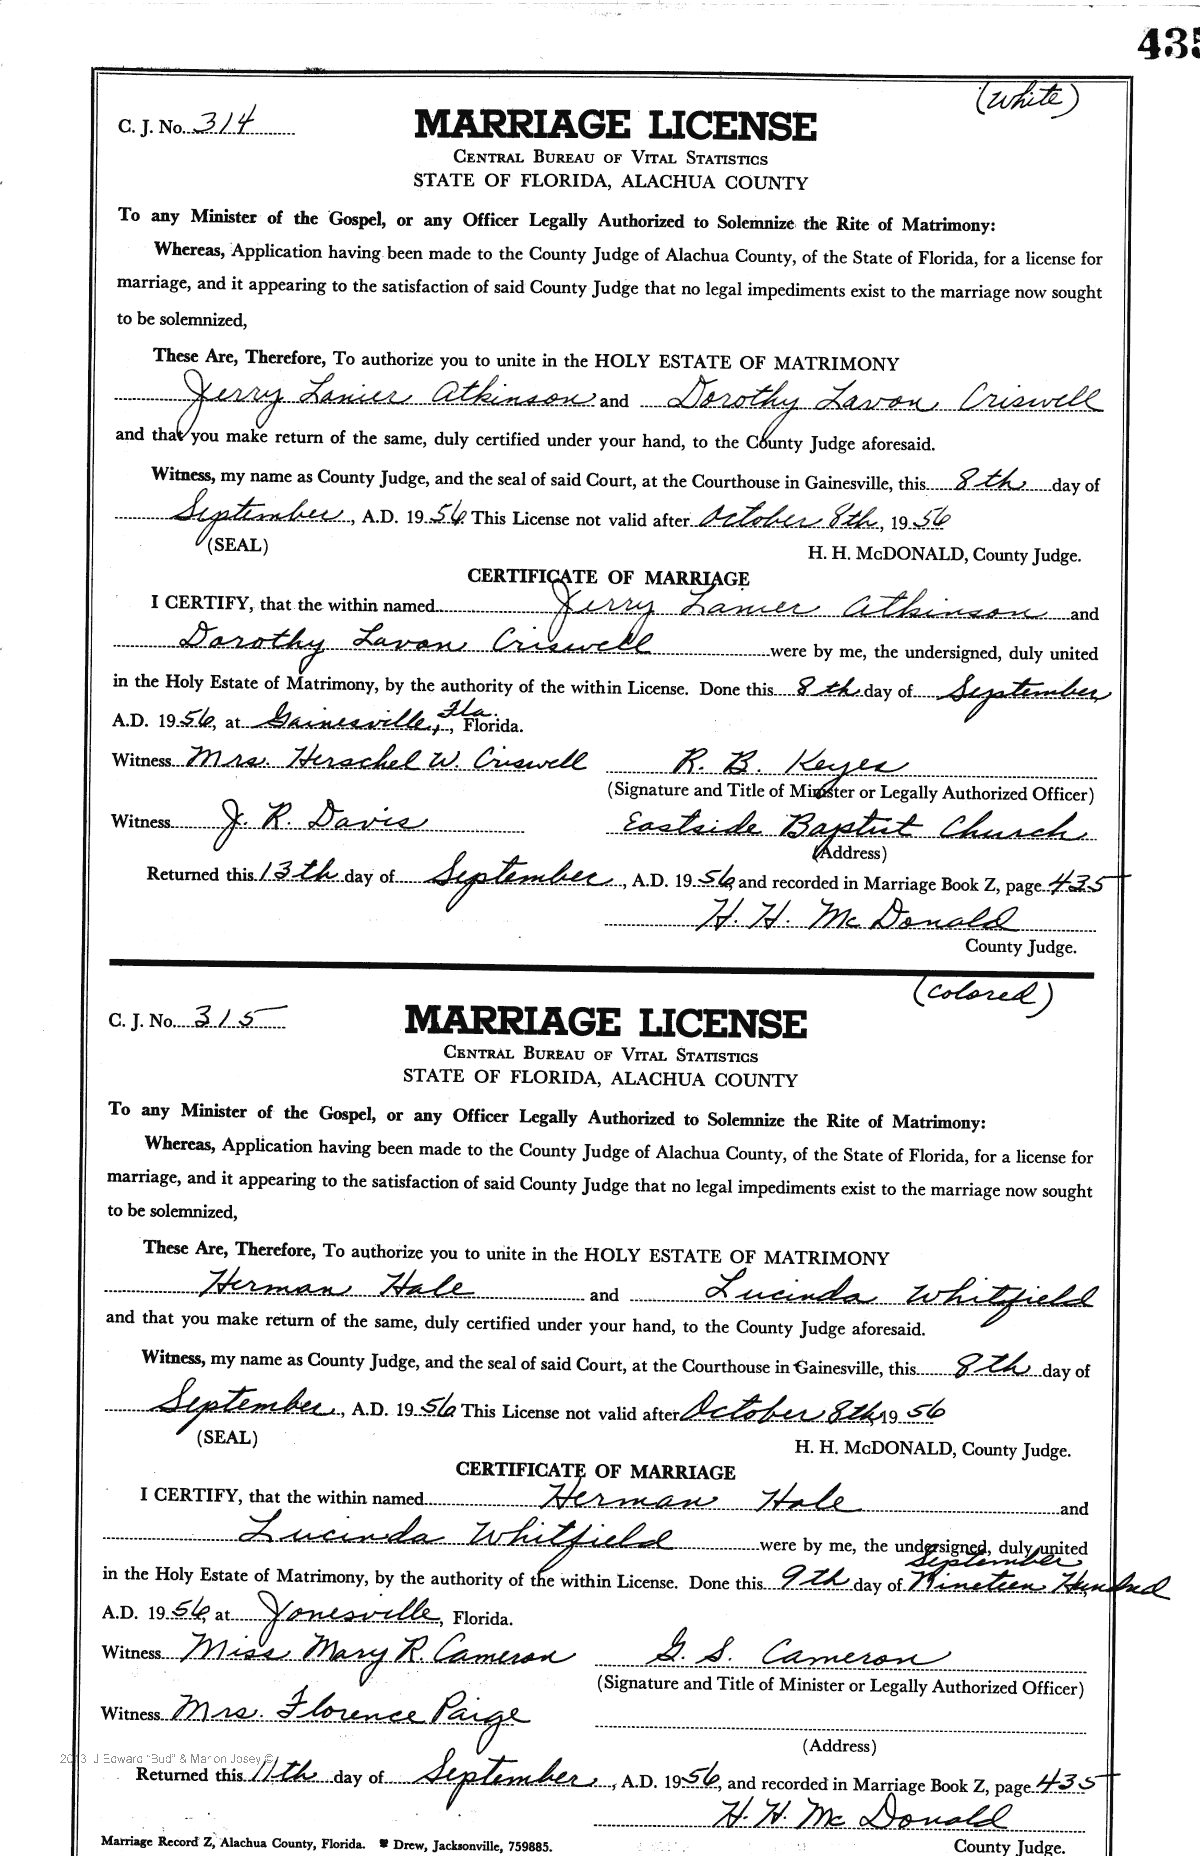 435
(White)
C. J. No. 314
MARRIAGE LICENSE
CENTRAL BUREAU OF VITAL STATISTICS
STATE OF FLORIDA, ALACHUA COUNTY
To any Minister of the Gospel, or any Officer Legally Authorized to Solemnize the Rite of Matrimony:
Whereas, Application having been made to the County Judge of Alachua County, of the State of Florida, for a license for
marriage, and it appearing to the satisfaction of said County Judge that no legal impediments exist to the marriage now sought
to be solemnized,
These Are, Therefore, To authorize you to unite in the HOLY ESTATE OF MATRIMONY
Jerry Lanier Atkinson and Dorothy Lavon Criswell
and that you make return of the same, duly certified under your hand, to the County Judge aforesaid.
Witness, my name as County Judge, and the seal of said Court, at the Courthouse in Gainesville, this 8th day of
September, A.D. 1956 This License not valid after October 8th, 1956
(SEAL)
H. H. McDONALD, County Judge.
CERTIFICATE OF MARRIAGE
I CERTIFY, that the within named Jerry Lanier Atkinson and
Dorothy Lavon Criswell were by me, the undersigned, duly united
in the Holy Estate of Matrimony, by the authority of the within License. Done this 8th day of September,
A.D. 1956, at Gainesville, Fla., Florida.
Witness Mrs. Herschel W. Criswell R. B. Keyes
(Signature and Title of Minister or Legally Authorized Officer)
Witness J. R. Davis Eastside Baptist Church
(Address)
Returned this 13th day of September, A.D. 1956, and recorded in Marriage Book Z, page 435
H. H. McDonald
County Judge.
(Colored)
C. J. No. 315
MARRIAGE LICENSE
CENTRAL BUREAU OF VITAL STATISTICS
STATE OF FLORIDA, ALACHUA COUNTY
To any Minister of the Gospel, or any Officer Legally Authorized to Solemnize the Rite of Matrimony:
Whereas, Application having been made to the County Judge of Alachua County, of the State of Florida, for a license for
marriage, and it appearing to the satisfaction of said County Judge that no legal impediments exist to the marriage now sought
to be solemnized,
These Are, Therefore, To authorize you to unite in the HOLY ESTATE OF MATRIMONY
Herman Hale and Lucinda Whitfield
and that you make return of the same, duly certified under your hand, to the County Judge aforesaid.
Witness, my name as County Judge, and the seal of said Court, at the Courthouse in Gainesville, this 8th day of
September, A.D. 1956 This License not valid after October 8th, 1956
(SEAL)
H. H. McDONALD, County Judge.
CERTIFICATE OF MARRIAGE
I CERTIFY, that the within named Herman Hale and
Lucinda Whitfield were by me, the undersigned, duly united
September
in the Holy Estate of Matrimony, by the authority of the within License. Done this 9th day of Nineteen Hundred
A.D. 1956, at Jonesville, Florida.
Witness Miss Mary R. Cameron G. S. Cameron
(Signature and Title of Minister or Legally Authorized Officer)
Witness Mrs. Florence Paige
(Address)
2013 J Edward "Bud" & Marion Josey ©
Returned this 11th day of September, A.D. 1956, and recorded in Marriage Book Z, page 435
H. H. McDonald
Marriage Record Z, Alachua County, Florida. Drew, Jacksonville, 759885.
County Judge.